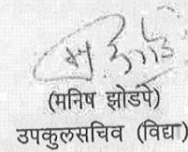 (मनिष झोडपे)
उपकुलसचिव (विद्या)